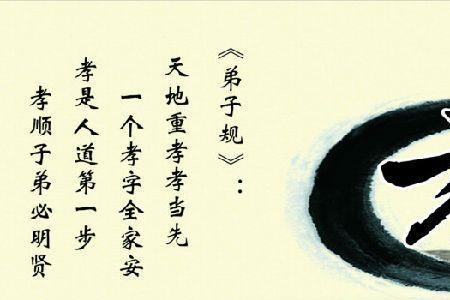 《弟子规》：
天地重孝孝当先
一个孝字全家安
孝是人道第一步
孝顺子弟必明贤